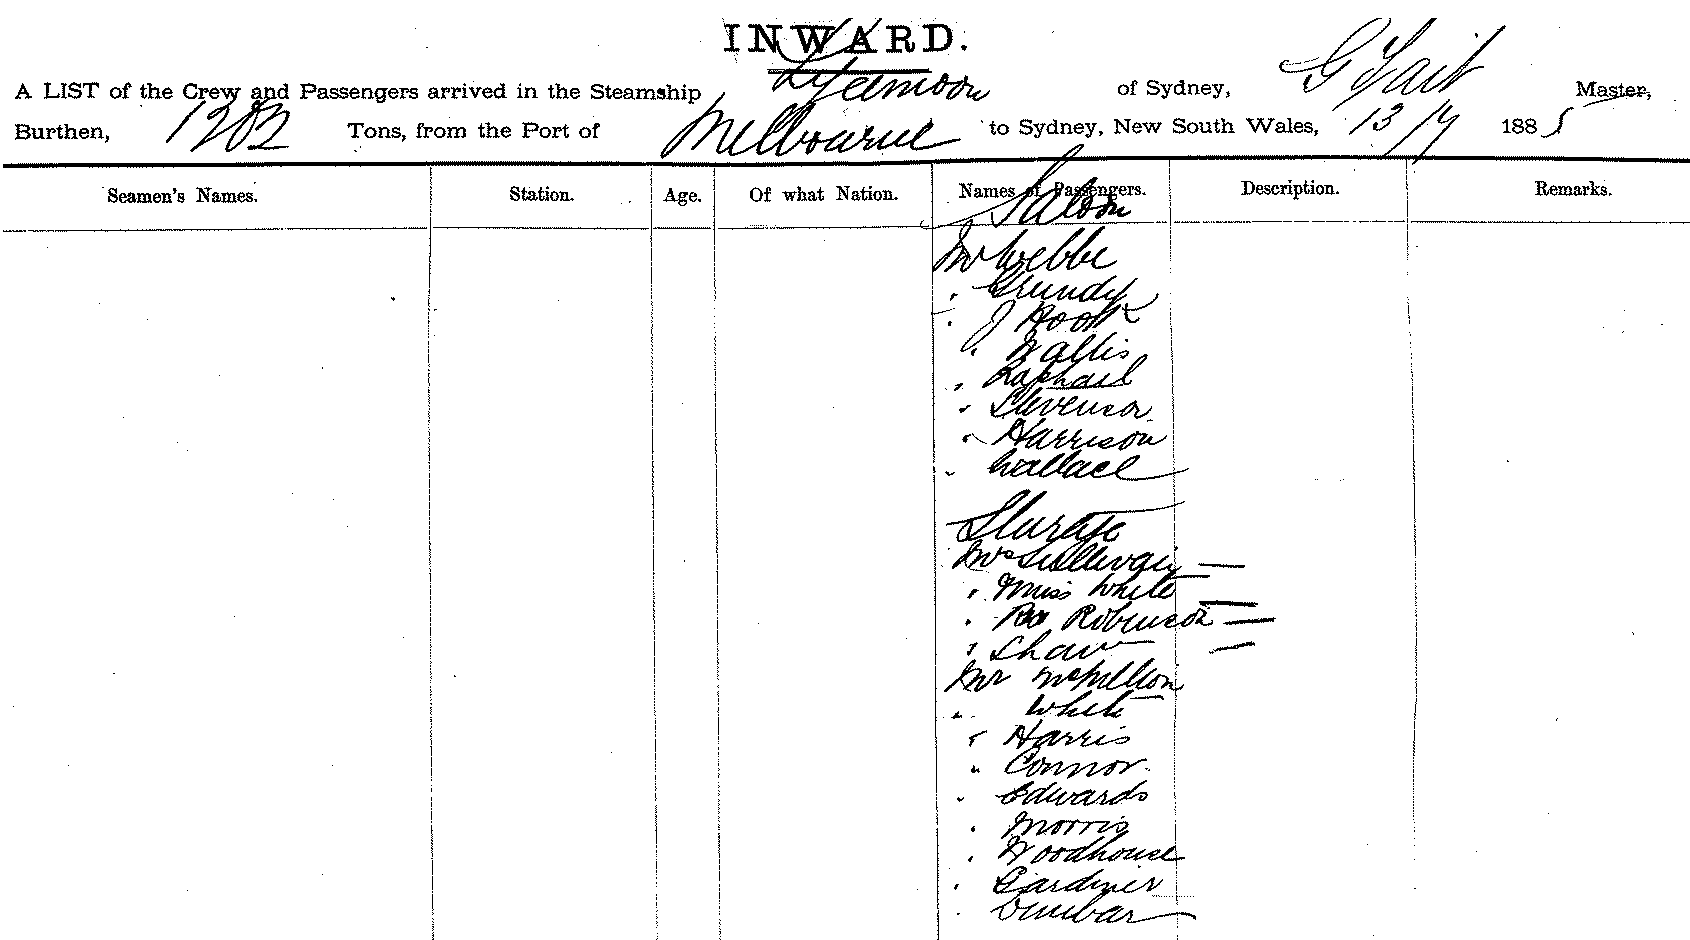 INWARD.
A LIST of the Crew and Passengers arrived in the Steamship Lyeemoon of Sydney, G Tait Master,
Burthen, 1202 Tons, from the Port of Melbourne to Sydney, New South Wales, 13/7 1885
Seamen's Names. Station. Age. Of what Nation. Names of Passengers. Description. Remarks.
Saloon
Mr Webbe
" Grundy
" J Hook
" Wallis
" Raphael
" Stevenson
" Harrison
" Wallace
Steerage
Mrs Sullivan —
" Miss White —
" Robinson —
" Shaw —
Mr McMillion
" White
" Harris
" Connor
" Edwards
" Morris
" Woodhouse
" Gardiner
" Dunbar